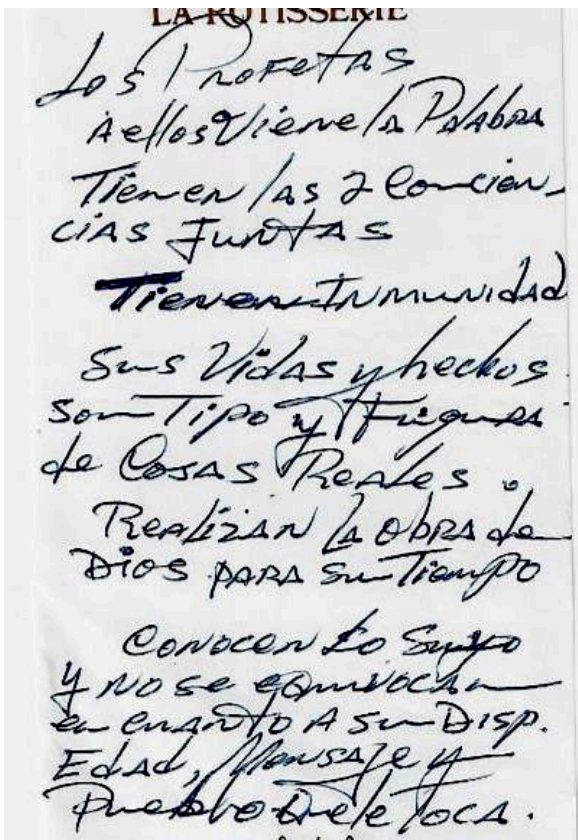 LA ROTISSERIE
Los Profetas
A ellos Viene la Palabra
Tienen las 2 Concien-
cias Juntas
Tienen Inmunidad
Sus Vidas y hechos
son Tipo y Figura
de Cosas Reales.
Realizan la obra de
Dios para su Tiempo
Conocen Lo Suyo
y no se equivocan
en cuanto A su Disp.
Edad, Mensaje y
Pueblo Que le Toca.